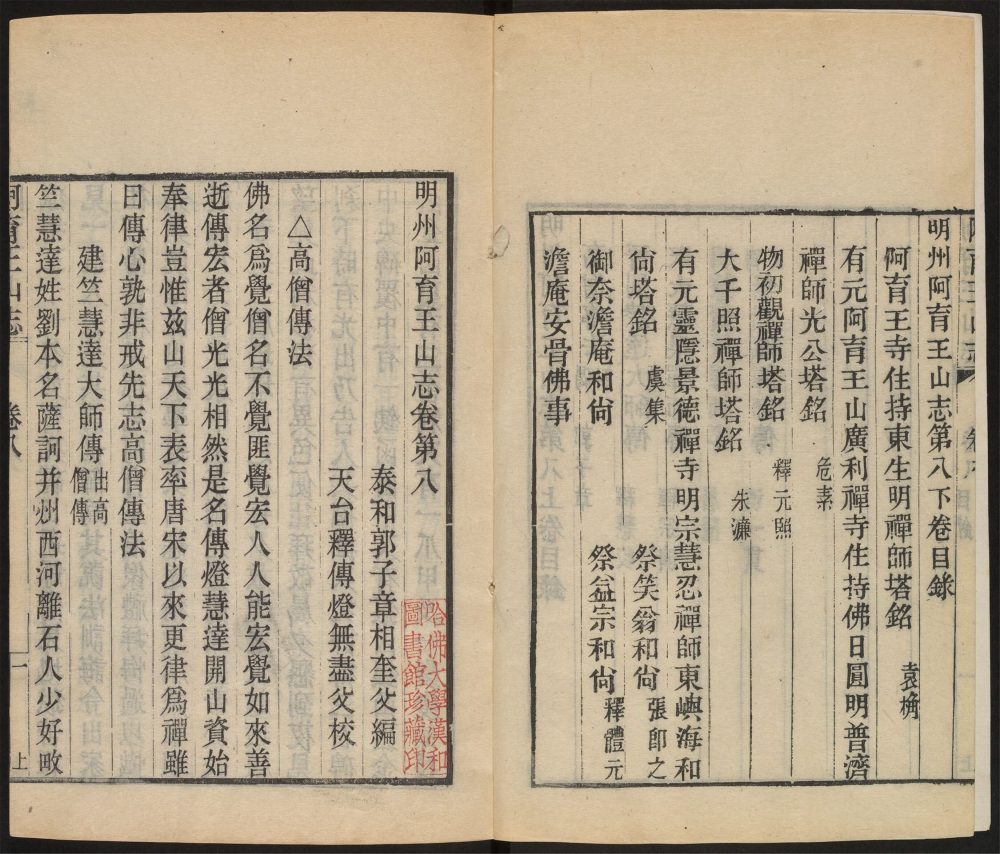 明州阿育王山志第八下卷目錄
阿育王寺住持東生明禪師塔銘 袁桷
有元阿育王山廣利禪寺住持佛日圓明普濟
禪師光公塔銘 危素
物初觀禪師塔銘 釋元熙
大千照禪師塔銘 朱濂
有元靈隱景德禪寺明宗慧忍禪師東嶼海和
尙塔銘 虞集 祭笑翁和尙 張卽之
御奈澹庵和尙 祭益宗和尙 釋體元
澹庵安骨佛事
明州阿育王山志卷第八
泰和郭子章相奎父編
天台釋傳燈無盡父校
△高僧傳法
佛名爲覺僧名不覺匪覺宏人人能宏覺如來善
逝傳宏者僧光光相然是名傳燈慧達開山資始
奉律豈惟茲山天下表率唐宋以來更律爲禪雖
曰傳心孰非戒先志高僧傳法
建竺慧達大師傳 出高僧傳
竺慧達姓劉本名薩訶并州西河離石人少好畋
阿育王山志 卷八 一 上
哈佛大學漢和
圖書館珍藏印